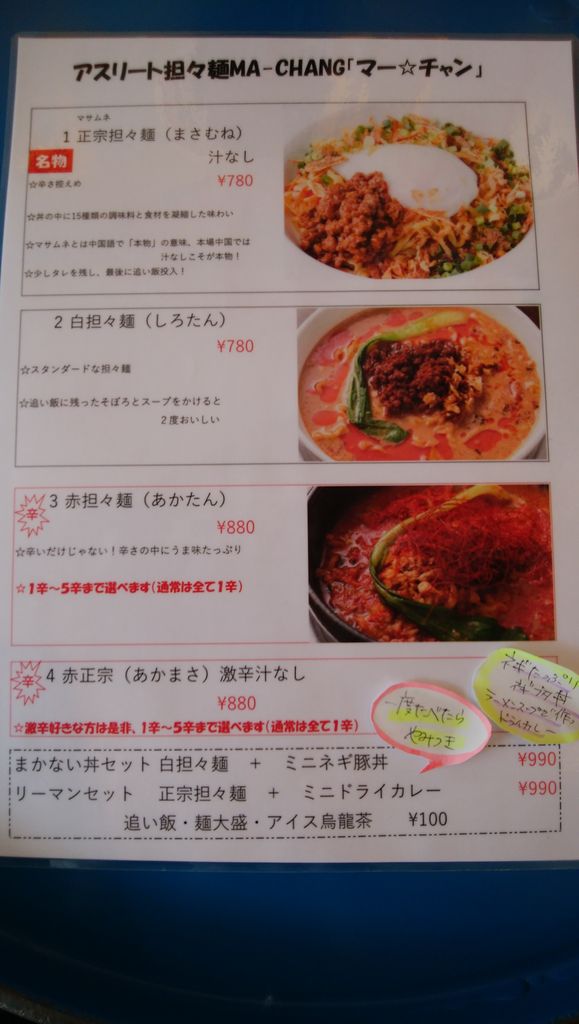 アスリート担々麺MA-CHANG「マー☆チャン」
マサムネ
1 正宗担々麺（まさむね）
名物
汁なし
☆辛さ控えめ
¥780
☆丼の中に15種類の調味料と食材を凝縮した味わい
☆マサムネとは中国語で「本物」の意味、本場中国では
汁なしこそが本物！
☆少しタレを残し、最後に追い飯投入！
2 白担々麺（しろたん）
¥780
☆スタンダードな担々麺
☆追い飯に残ったそぼろとスープをかけると
２度おいしい
辛
3 赤担々麺（あかたん）
¥880
☆辛いだけじゃない！辛さの中にうま味たっぷり
☆1辛～5辛まで選べます（通常は全て1辛）
辛
4 赤正宗（あかまさ）激辛汁なし
¥880
☆激辛好きな方は是非、1辛～5辛まで選べます（通常は全て1辛）
一度たべたら
やみつき
ネギたっぷり
ネギ豚丼
ラーメンスープで作る
ドライカレー
まかない丼セット 白担々麺　＋　ミニネギ豚丼 ¥990
リーマンセット　正宗担々麺　＋　ミニドライカレー ¥990
追い飯・麺大盛・アイス烏龍茶　¥100